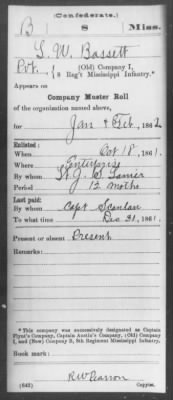 (Confederate.)
B 8 Miss.
S. W. Bassett
Pvt., (Old) Company I,
8 Reg't Mississippi Infantry.*
Appears on
Company Muster Roll
of the organization named above,
for Jan & Feb, 1862
Enlisted:
When Oct 18, 1861.
Where Enterprise
By whom Lt. J. S. Lanier
Period 12 moths
Last paid:
By whom Capt Scanlan
To what time Dec 31, 1861.
Present or absent Present
Remarks:
*This company was successively designated as Captain
Flynt's Company, Captain Austin's Company, (Old) Company
I, and (New) Company B, 8th Regiment Mississippi Infantry.
Book mark:
R W Pearson
(642) Copyist.